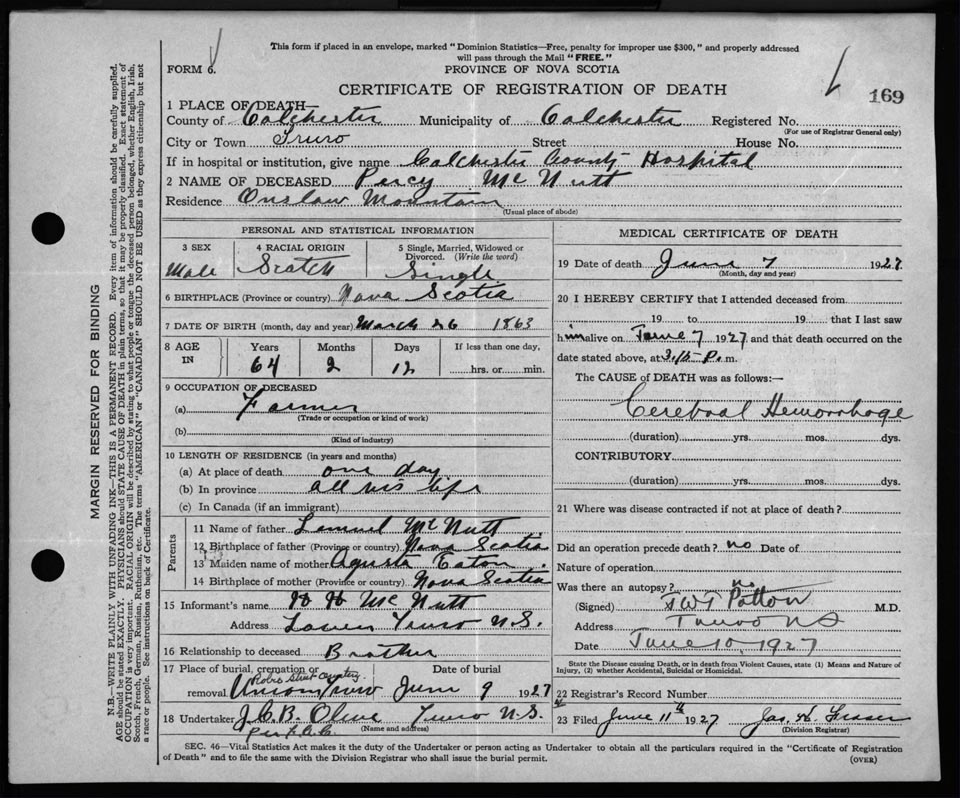 This form if placed in an envelope, marked "Dominion Statistics—Free, penalty for improper use $300," and properly addressed
will pass through the Mail "FREE."
FORM 6.
PROVINCE OF NOVA SCOTIA
CERTIFICATE OF REGISTRATION OF DEATH
169
1 PLACE OF DEATH—
County of Colchester Municipality of Colchester Registered No.
(For use of Registrar General only)
City or Town Truro Street House No.
If in hospital or institution, give name Colchester County Hospital
2 NAME OF DECEASED Percy McNutt
Residence Onslow Mountain
(Usual place of abode)
PERSONAL AND STATISTICAL INFORMATION
3 SEX 4 RACIAL ORIGIN 5 Single, Married, Widowed or Divorced. (Write the word)
Male Scotch Single
6 BIRTHPLACE (Province or country) Nova Scotia
7 DATE OF BIRTH (month, day and year) March 26 1863
8 AGE IN Years Months Days If less than one day,
64 2 12 hrs. or min.
9 OCCUPATION OF DECEASED
(a) Farmer
(Trade or occupation or kind of work)
(b)
(Kind of industry)
10 LENGTH OF RESIDENCE (in years and months)
(a) At place of death one day
(b) In province all his life
(c) In Canada (if an immigrant)
Parents
11 Name of father Lemuel McNutt
12 Birthplace of father (Province or country) Nova Scotia
13 Maiden name of mother Agusta Eaton
14 Birthplace of mother (Province or country) Nova Scotia
15 Informant's name McNutt
Address Lower Truro N.S.
16 Relationship to deceased Brother
17 Place of burial, cremation or Date of burial
Robie Street Cemetery
removal Truro June 9 1927
18 Undertaker J.C.B. Olive Truro N.S.
(Name and address)
MEDICAL CERTIFICATE OF DEATH
19 Date of death June 7 1927
(Month, day and year)
20 I HEREBY CERTIFY that I attended deceased from
19 to 19 that I last saw
him alive on June 7 1927 and that death occurred on the
date stated above, at 3.15 P. m.
The CAUSE of DEATH was as follows:—
Cerebral Hemorrhage
(duration) yrs. mos. dys.
CONTRIBUTORY
(duration) yrs. mos. dys.
21 Where was disease contracted if not at place of death?
Did an operation precede death? no Date of
Nature of operation
Was there an autopsy? no
(Signed) Patton M.D.
Address Truro NS
Date June 10, 1927
State the Disease causing Death, or in death from Violent Causes, state (1) Means and Nature of
Injury, (2) whether Accidental, Suicidal or Homicidal.
22 Registrar's Record Number
23 Filed June 11th 1927 Jas. Fraser
(Division Registrar)
SEC. 46—Vital Statistics Act makes it the duty of the Undertaker or person acting as Undertaker to obtain all the particulars required in the "Certificate of Registration
of Death" and to file the same with the Division Registrar who shall issue the burial permit.
(OVER)
MARGIN RESERVED FOR BINDING
N.B.—WRITE PLAINLY WITH UNFADING INK—THIS IS A PERMANENT RECORD. Every item of information should be carefully supplied.
AGE should be stated EXACTLY. PHYSICIANS should STATE CAUSE OF DEATH in plain terms, so that it may be properly classified. Exact statement of
OCCUPATION is very important. RACIAL ORIGIN will be described by stating to what people or tongue the deceased person belonged, whether English, Irish,
Scotch, French, German, Russian, Ruthenian, etc. The terms "AMERICAN" or "CANADIAN" SHOULD NOT BE USED as they express citizenship but not
a race or people. See instructions on back of Certificate.